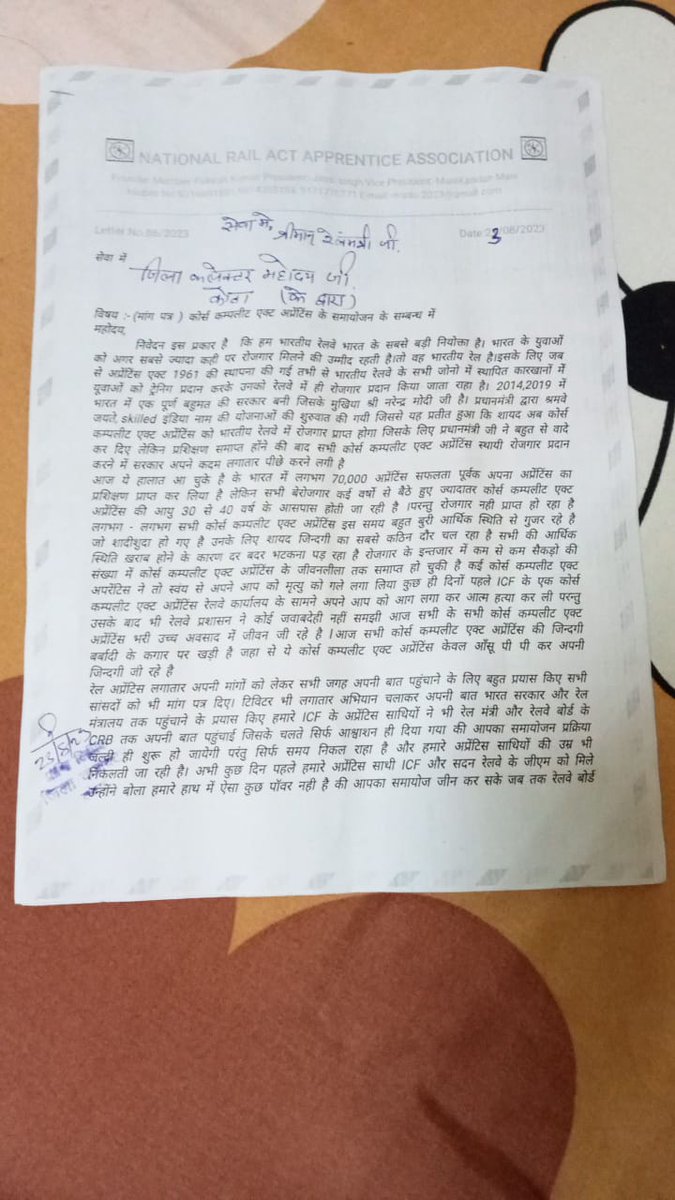 NATIONAL RAIL ACT APPRENTICE ASSOCIATION
Letter No.06/2023
Date 23/08/2023
सेवा में, श्रीमान रेलमंत्री जी.
सेवा में
जिला कलेक्टर महोदय जी.
कोटा (के द्वारा)
विषय :-(मांग पत्र ) कोर्स कम्पलीट एक्ट अप्रेंटिस के समायोजन के सम्बन्ध में
महोदय,
निवेदन इस प्रकार है कि हम भारतीय रेलवे भारत के सबसे बड़ी नियोक्ता है। भारत के युवाओं
को अगर सबसे ज्यादा कही पर रोजगार मिलने की उम्मीद रहती है।तो वह भारतीय रेल है।इसके लिए जब
से अप्रेंटिस एक्ट 1961 की स्थापना की गई तभी से भारतीय रेलवे के सभी जोनो में स्थापित कारखानों में
युवाओं को ट्रेनिंग प्रदान करके उनको रेलवे में ही रोजगार प्रदान किया जाता रहा है। 2014,2019 में
भारत में एक पूर्ण बहुमत की सरकार बनी जिसके मुखिया श्री नरेन्द्र मोदी जी है। प्रधानमंत्री द्वारा श्रमवे
जयते, skilled इंडिया नाम की योजनाओं की शुरुवात की गयी जिससे यह प्रतीत हुआ कि शायद अब कोर्स
कम्पलीट एक्ट अप्रेंटिस को भारतीय रेलवे में रोजगार प्राप्त होगा जिसके लिए प्रधानमंत्री जी ने बहुत से वादे
कर दिए लेकिन प्रशिक्षण समाप्त होंने की बाद सभी कोर्स कम्पलीट एक्ट अप्रेंटिस स्थायी रोजगार प्रदान
करने में सरकार अपने कदम लगातार पीछे करने लगी है
आज ये हालात आ चुके है के भारत में लगभग 70,000 अप्रेंटिस सफलता पूर्वक अपना अप्रेंटिस का
प्रशिक्षण प्राप्त कर लिया है लेकिन सभी बेरोजगार कई वर्षो से बैठे हुए ज्यादातर कोर्स कम्पलीट एक्ट
अप्रेंटिस की आयु 30 से 40 वर्ष के आसपास होती जा रही है ।परन्तु रोजगार नही प्राप्त हो रहा है
लगभग - लगभग सभी कोर्स कम्पलीट एक्ट अप्रेंटिस इस समय बहुत बुरी आर्थिक स्थिति से गुजर रहे है
जो शादीशुदा हो गए है उनके लिए शायद जिन्दगी का सबसे कठिन दौर चल रहा है सभी की आर्थिक
स्थिति खराब होने के कारण दर बदर भटकना पड़ रहा है रोजगार के इन्तजार में कम से कम सैकड़ो की
संख्या में कोर्स कम्पलीट एक्ट अप्रेंटिस के जीवनलीला तक समाप्त हो चुकी है कई कोर्स कम्पलीट एक्ट
अपरेंटिस ने तो स्वंय से अपने आप को मृत्यु को गले लगा लिया कुछ ही दिनों पहले ICF के एक कोर्स
कम्पलीट एक्ट अप्रेंटिस रेलवे कार्यालय के सामने अपने आप को आग लगा कर आत्म हत्या कर ली परन्तु
उसके बाद भी रेलवे प्रशासन ने कोई जवाबदेही नहीं समझी आज सभी के सभी कोर्स कम्पलीट एक्ट
अप्रेंटिस भरी उच्च अवसाद में जीवन जी रहे है ।आज सभी कोर्स कम्पलीट एक्ट अप्रेंटिस की जिन्दगी
बर्बादी के कगार पर खड़ी है जहा से ये कोर्स कम्पलीट एक्ट अप्रेंटिस केवल आँसू पी पी कर अपनी
जिन्दगी जी रहे है
रेल अप्रेंटिस लगातार अपनी मांगों को लेकर सभी जगह अपनी बात पहुंचाने के लिए बहुत प्रयास किए सभी
सांसदों को भी मांग पत्र दिए। टिविटर भी लगातार अभियान चलाकर अपनी बात भारत सरकार और रेल
मंत्रालय तक पहुंचाने के प्रयास किए हमारे ICF के अप्रेंटिस साथियों ने भी रेल मंत्री और रेलवे बोर्ड के
CRB तक अपनी बात पहुंचाई जिसके चलते सिर्फ आश्वाशन ही दिया गया की आपका समायोजन प्रक्रिया
जल्दी ही शुरू हो जायेगी परंतु सिर्फ समय निकल रहा है और हमारे अप्रेंटिस साथियों की उम्र भी
निकलती जा रही है। अभी कुछ दिन पहले हमारे अप्रेंटिस साथी ICF और सदन रेलवे के जीएम को मिले
उन्होंने बोला हमारे हाथ में ऐसा कुछ पॉवर नही है की आपका समायोज जीन कर सके जब तक रेलवे बोर्ड